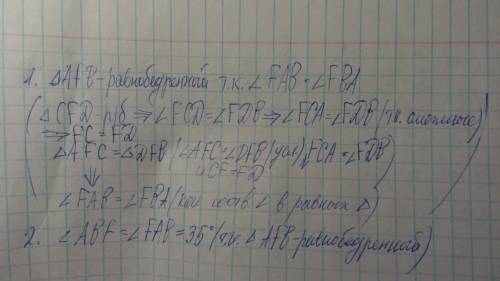 1. △AFB-равнобедренный т.к. ∠FAB=∠FBA
(△CFD-р/б ⇒ ∠FCD=∠FDB ⇒ ∠FCA=∠FDB/т.к. смежные)
⇒ FC=FD
△AFC=△DFB/∠AFC=∠DFB/усл), FCA=∠FDB)
и CF=FD
↓
∠FAB=∠FBA/как соотв ∠ в равных △)
2. ∠ABF=∠FAB=35°/т.к. △AFB-равнобедренный)